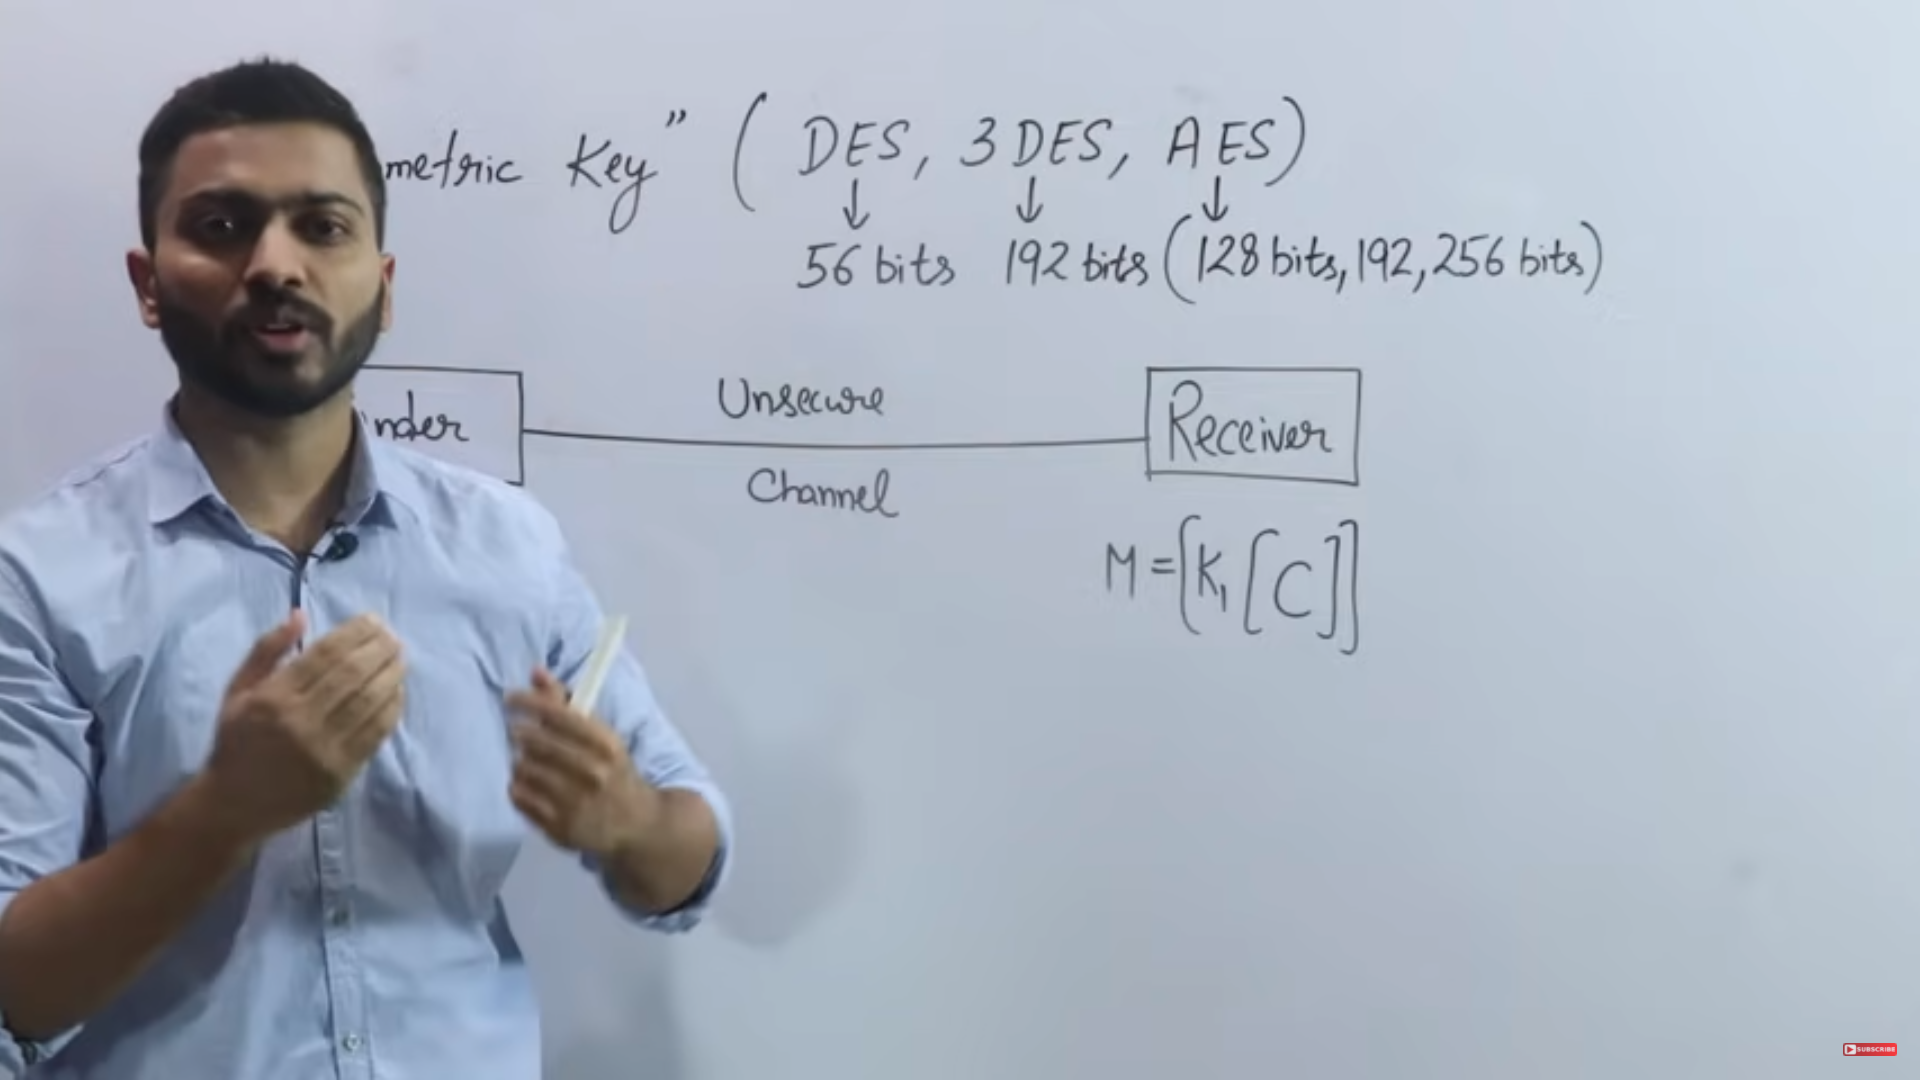 metric Key" ( DES, 3DES, AES)
↓ ↓ ↓
56 bits 192 bits (128 bits, 192, 256 bits)
nder
Unsecure
Channel
Receiver
M = [K₁ [C]]
SUBSCRIBE